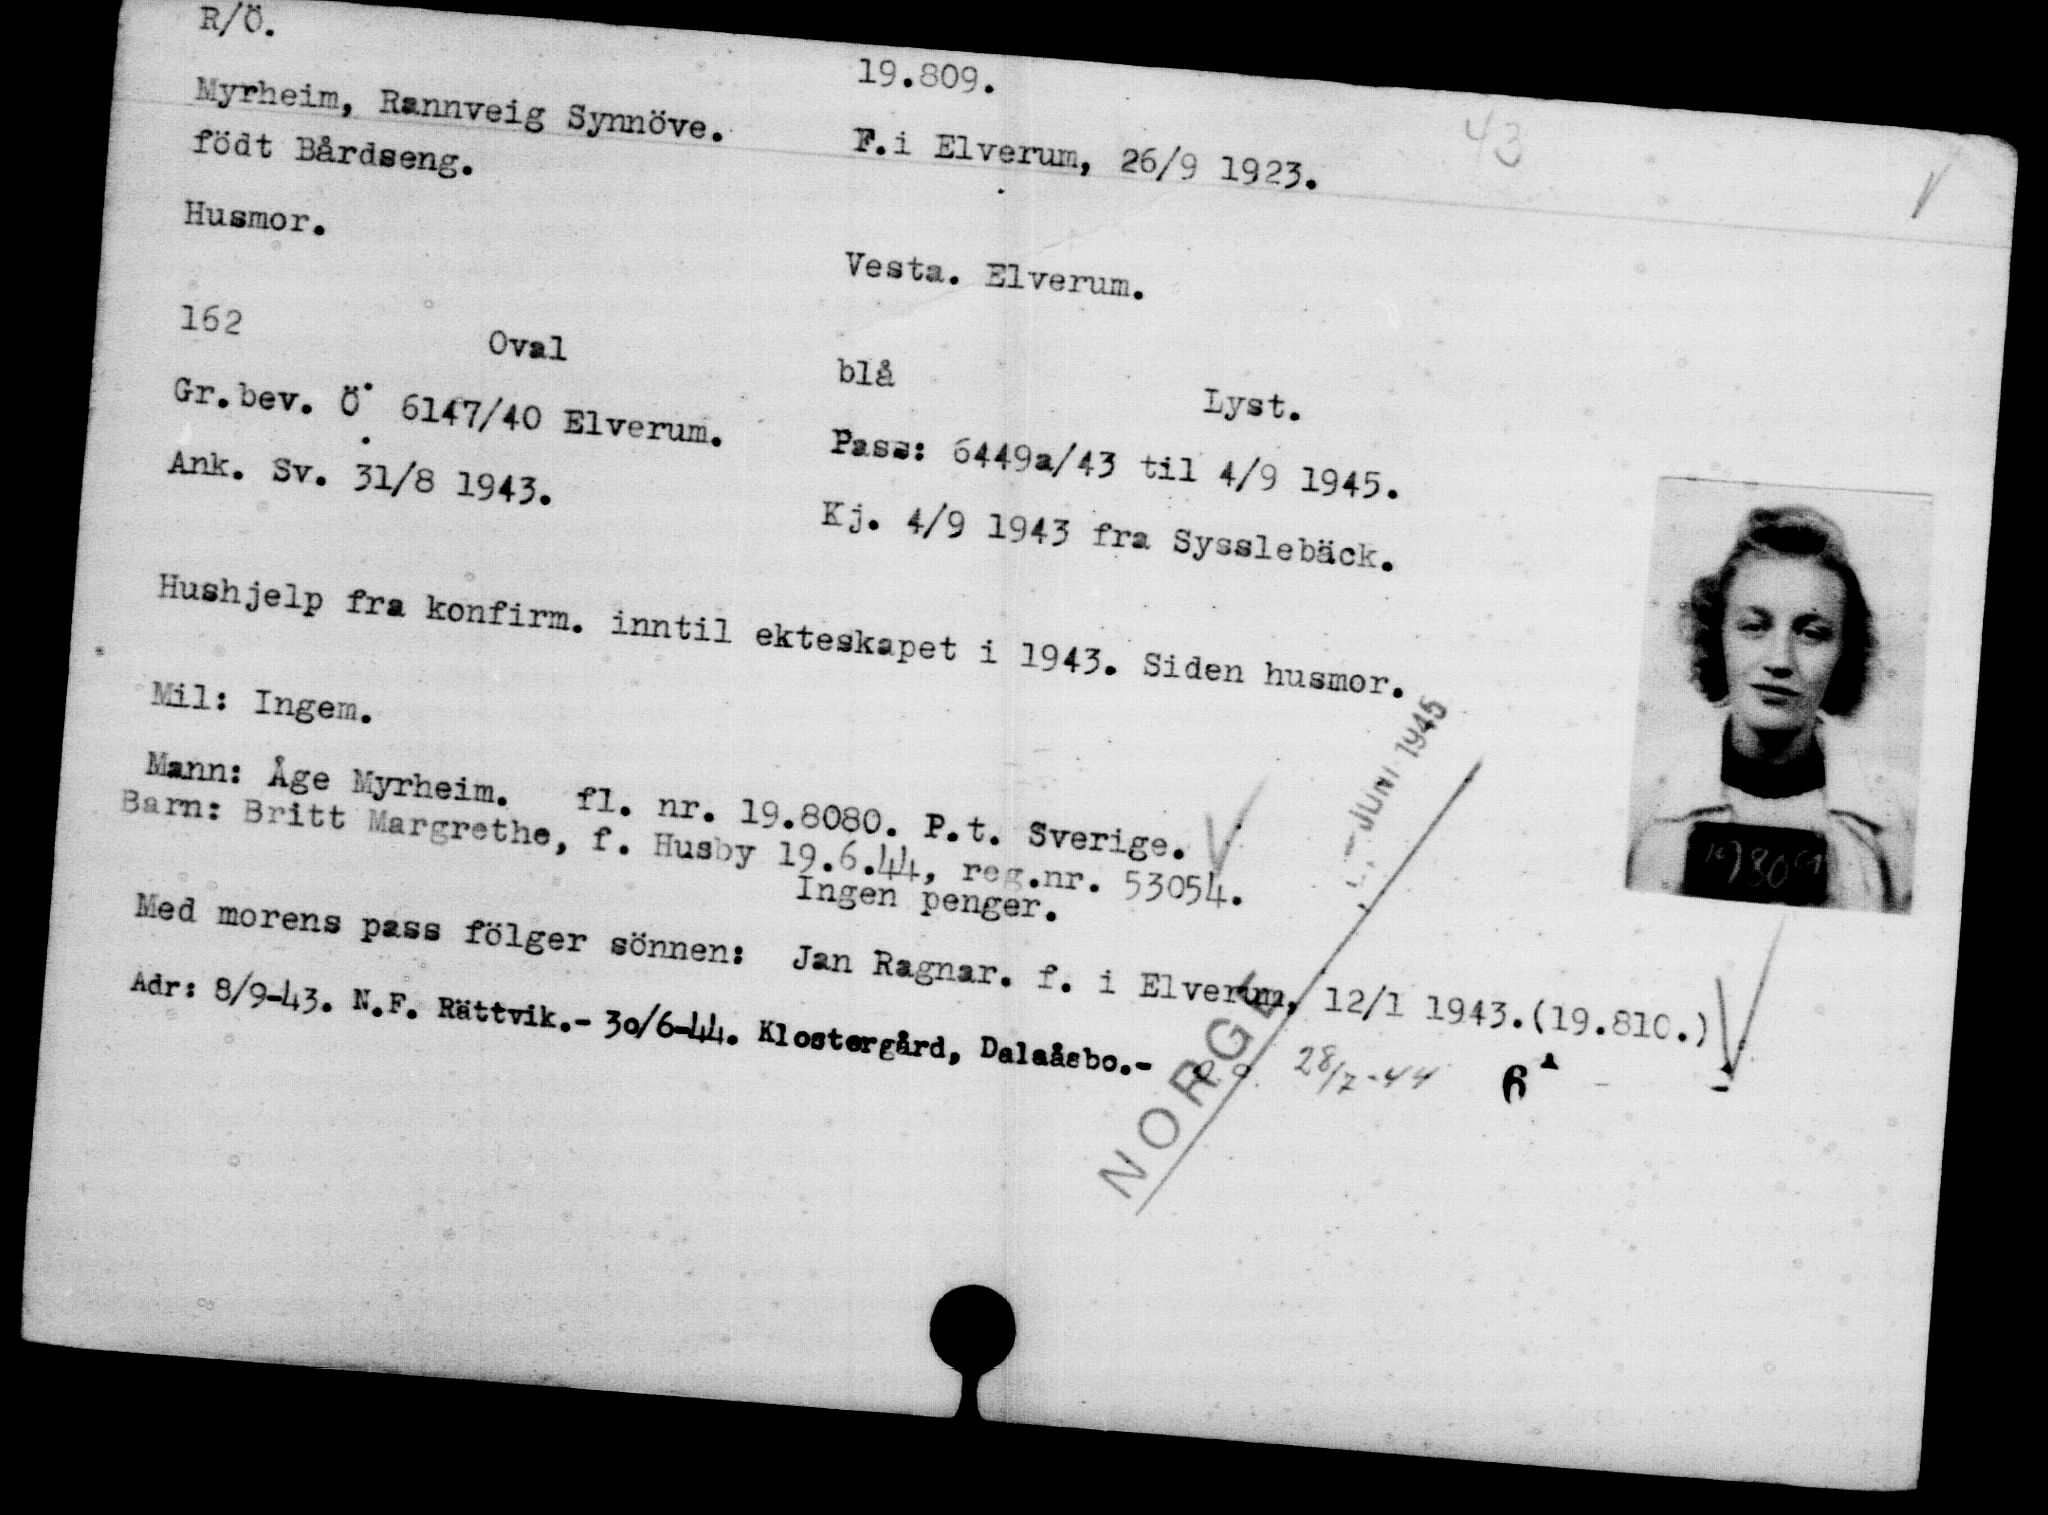 R/Ö.
19.809.
43
Myrheim, Rannveig Synnöve.
F.i Elverum, 26/9 1923.
födt Bårdseng.
Husmor.
Vesta. Elverum.
162 Oval blå Lyst.
Gr.bev. Ö 6147/40 Elverum.
Pass: 6449a/43 til 4/9 1945.
Ank. Sv. 31/8 1943.
Kj. 4/9 1943 fra Sysslebäck.
Hushjelp fra konfirm. inntil ekteskapet i 1943. Siden husmor.
Mil: Ingem.
Mann: Åge Myrheim. fl. nr. 19.8080. P.t. Sverige.
Barn: Britt Margrethe, f. Husby 19.6.44, reg.nr. 53054.
Ingen penger.
Med morens pass fölger sönnen: Jan Ragnar. f. i Elverum, 12/1 1943.(19.810.)
Adr: 8/9-43. N.F. Rättvik.- 30/6-44. Klostergård, Dalaåsbo.-
28/7-44
JUNI 1945
NORGE
19809